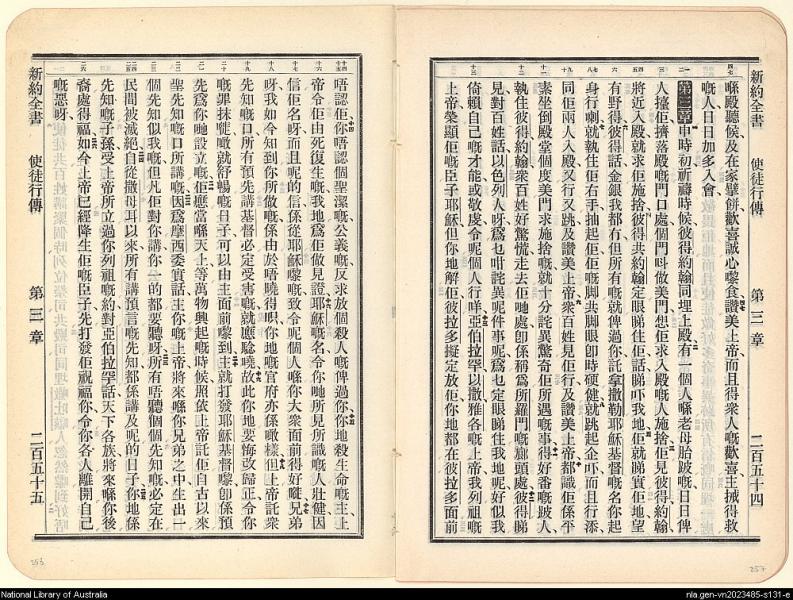 新約全書 使徒行傳 第三章 二百五十四
喺殿聽候及在家擘餅歡喜誠心嚟食讚美上帝而且得衆人嘅歡喜主搣得救
嘅人日日加多入會
第三章申時初祈禱時候彼得約翰同埋上殿有一個人喺老母胎跛嘅日日俾
人擡佢擠落殿嘅門口處個門呌做美門想佢求入殿嘅人施捨佢見彼得約翰
將近入殿就求佢施捨彼得共約翰定眼睇住佢話睇吓我地佢就睇實佢地望
有野得彼得話金銀我都有但所有嘅就俾過你託拿撒勒耶穌基督嘅名你起
身行喇就執住佢右手抽起佢佢嘅脚共脚眼卽時硬健就跳起企吓而且行添
同佢兩人入殿又行又跳及讚美上帝衆百姓見佢行及讚美上帝都識佢係平
素坐倒殿堂個度美門求施捨嘅就十分詫異驚奇佢所遇嘅事得好番嘅跛人
執住彼得約翰衆百姓好驚慌走去佢哋處卽係稱爲所羅門嘅廊頭處彼得睇
見對百姓話以色列人呀爲乜咁詫異呢件事呢爲乜定眼睇住我地呢好似我
倚賴自己嘅才能或敬虔令呢個人行咩亞伯拉罕以撒雅各嘅上帝我列祖嘅
上帝榮顯佢嘅臣子耶穌但你地解佢彼拉多擬定放佢你地都在彼拉多面前
唔認佢你唔認個聖潔嘅公義嘅反求放個殺人嘅俾過你你地殺生命嘅主上
帝令佢由死復生嘅我地爲佢做見證耶穌嘅名令你哋所見所識嘅人壯健因
信佢名呀而且呢的信係從耶穌嚟嘅致令呢個人喺你大衆面前得好嘥兄弟
呀我如今知到你所做嘅係由於唔曉得啫你地嘅官府亦係噉樣但上帝託衆
先知嘅口所有預先講基督必定受害嘅就應驗嘵故此你地要悔改歸正令你
嘅罪抹嘥噉就舒暢嘅日子可以由主面前嚟到主就打發耶穌基督嚟卽係預
先爲你哋設立嘅佢應當喺天上等萬物興起嘅時候照依上帝託佢自古以來
聖先知嘅口所講嘅因爲摩西委實話主你嘅上帝將來喺你兄弟之中生出一
個先知似我嘅但凡佢對你講你一的都要聽呀所有唔聽個個先知嘅必定在
民間被滅絕自從撒母耳以來所有講預言嘅先知都係講及呢的日子你地係
先知嘅子孫受上帝所立過你列祖嘅約對亞伯拉罕話天下各族將來喺你後
裔處得福如今上帝已經降生佢嘅臣子先打發佢祝福你令你各人離開自己
嘅惡呀
新約全書 使徒行傳 第三章 二百五十五
253
257
National Library of Australia
nla.gen-vn2023485-s131-e